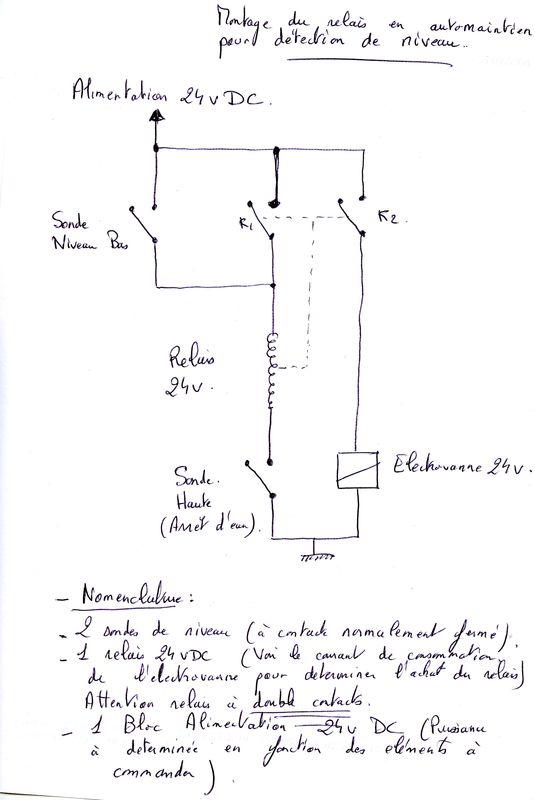 Montage du relais en automaintien
pour détection de niveau..
Alimentation 24v DC.
Sonde
Niveau Bas
K1
K2.
Relais
24v.
Electrovanne 24v.
Sonde.
Haute
(Arrêt d'eau).
- Nomenclature :
- 2 sondes de niveau (à contacts normalement fermé).
- 1 relais 24vDC (Voir le courant de consommation
de l'électrovanne pour determiner l'achat du relais)
Attention relais à double contacts.
- 1 Bloc Alimentation 24v DC (Puissance
à determinée en fonction des eléments à
commander).